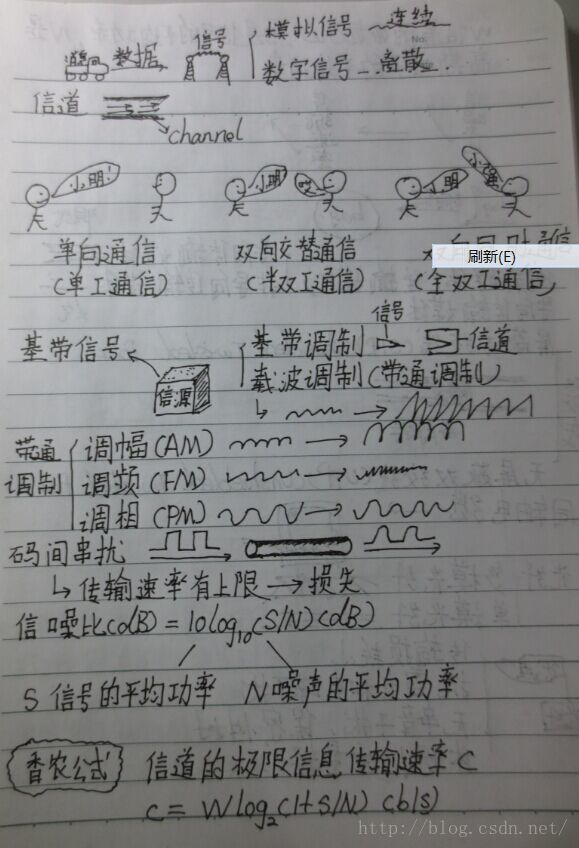 数据 信号 模拟信号 连续
No.
数字信号 离散
信道
channel
小明! 小明 小强
单向通信 双向交替通信 通信
(单工通信) (半双工通信) (全双工通信)
刷新(E)
信号
基带信号 基带调制 信道
信源 载波调制(带通调制)
带通调制 调幅(AM)
调频(FM)
调相(PM)
码间串扰
传输速率有上限 → 损失
信噪比(dB) = 10log10(S/N)(dB)
S 信号的平均功率 N 噪声的平均功率
香农公式 信道的极限信息传输速率 C
C = Wlog2(1+S/N) (b/s)
http://blog.csdn.net/